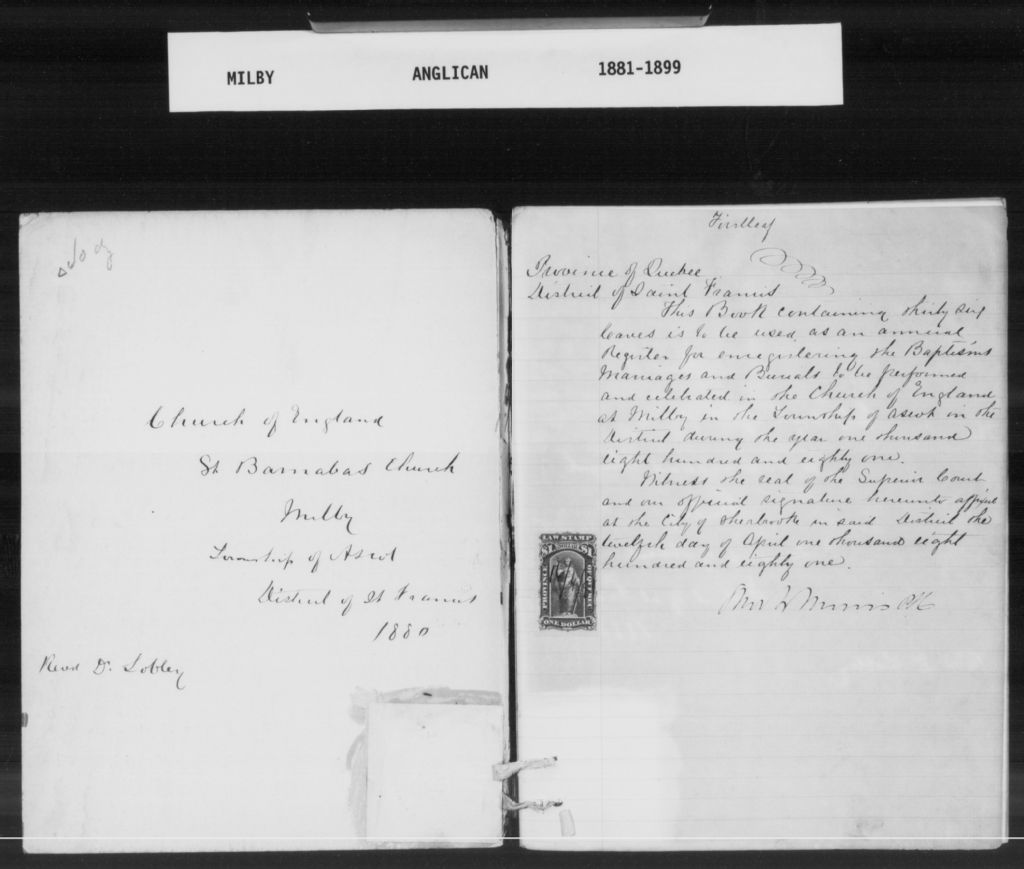 MILBY ANGLICAN 1881-1899
Church of England
St Barnabas Church
Milby
Township of Ascot
District of St Francis
1880
Revd Dr Lobley
First leaf
Province of Quebec
District of Saint Francis
This Book containing thirty six
leaves is to be used as an annual
Register for enregistering the Baptisms
Marriages and Burials to be performed
and celebrated in the Church of England
at Milby in the Township of Ascot in the
District during the year one thousand
eight hundred and eighty one.
Witness the seal of the Superior Court
and our official signature hereunto affixed
at the City of Sherbrooke in said District the
twelfth day of April one thousand eight
hundred and eighty one.
LAW STAMP
$1 $1
PROVINCE OF QUEBEC
ONE DOLLAR